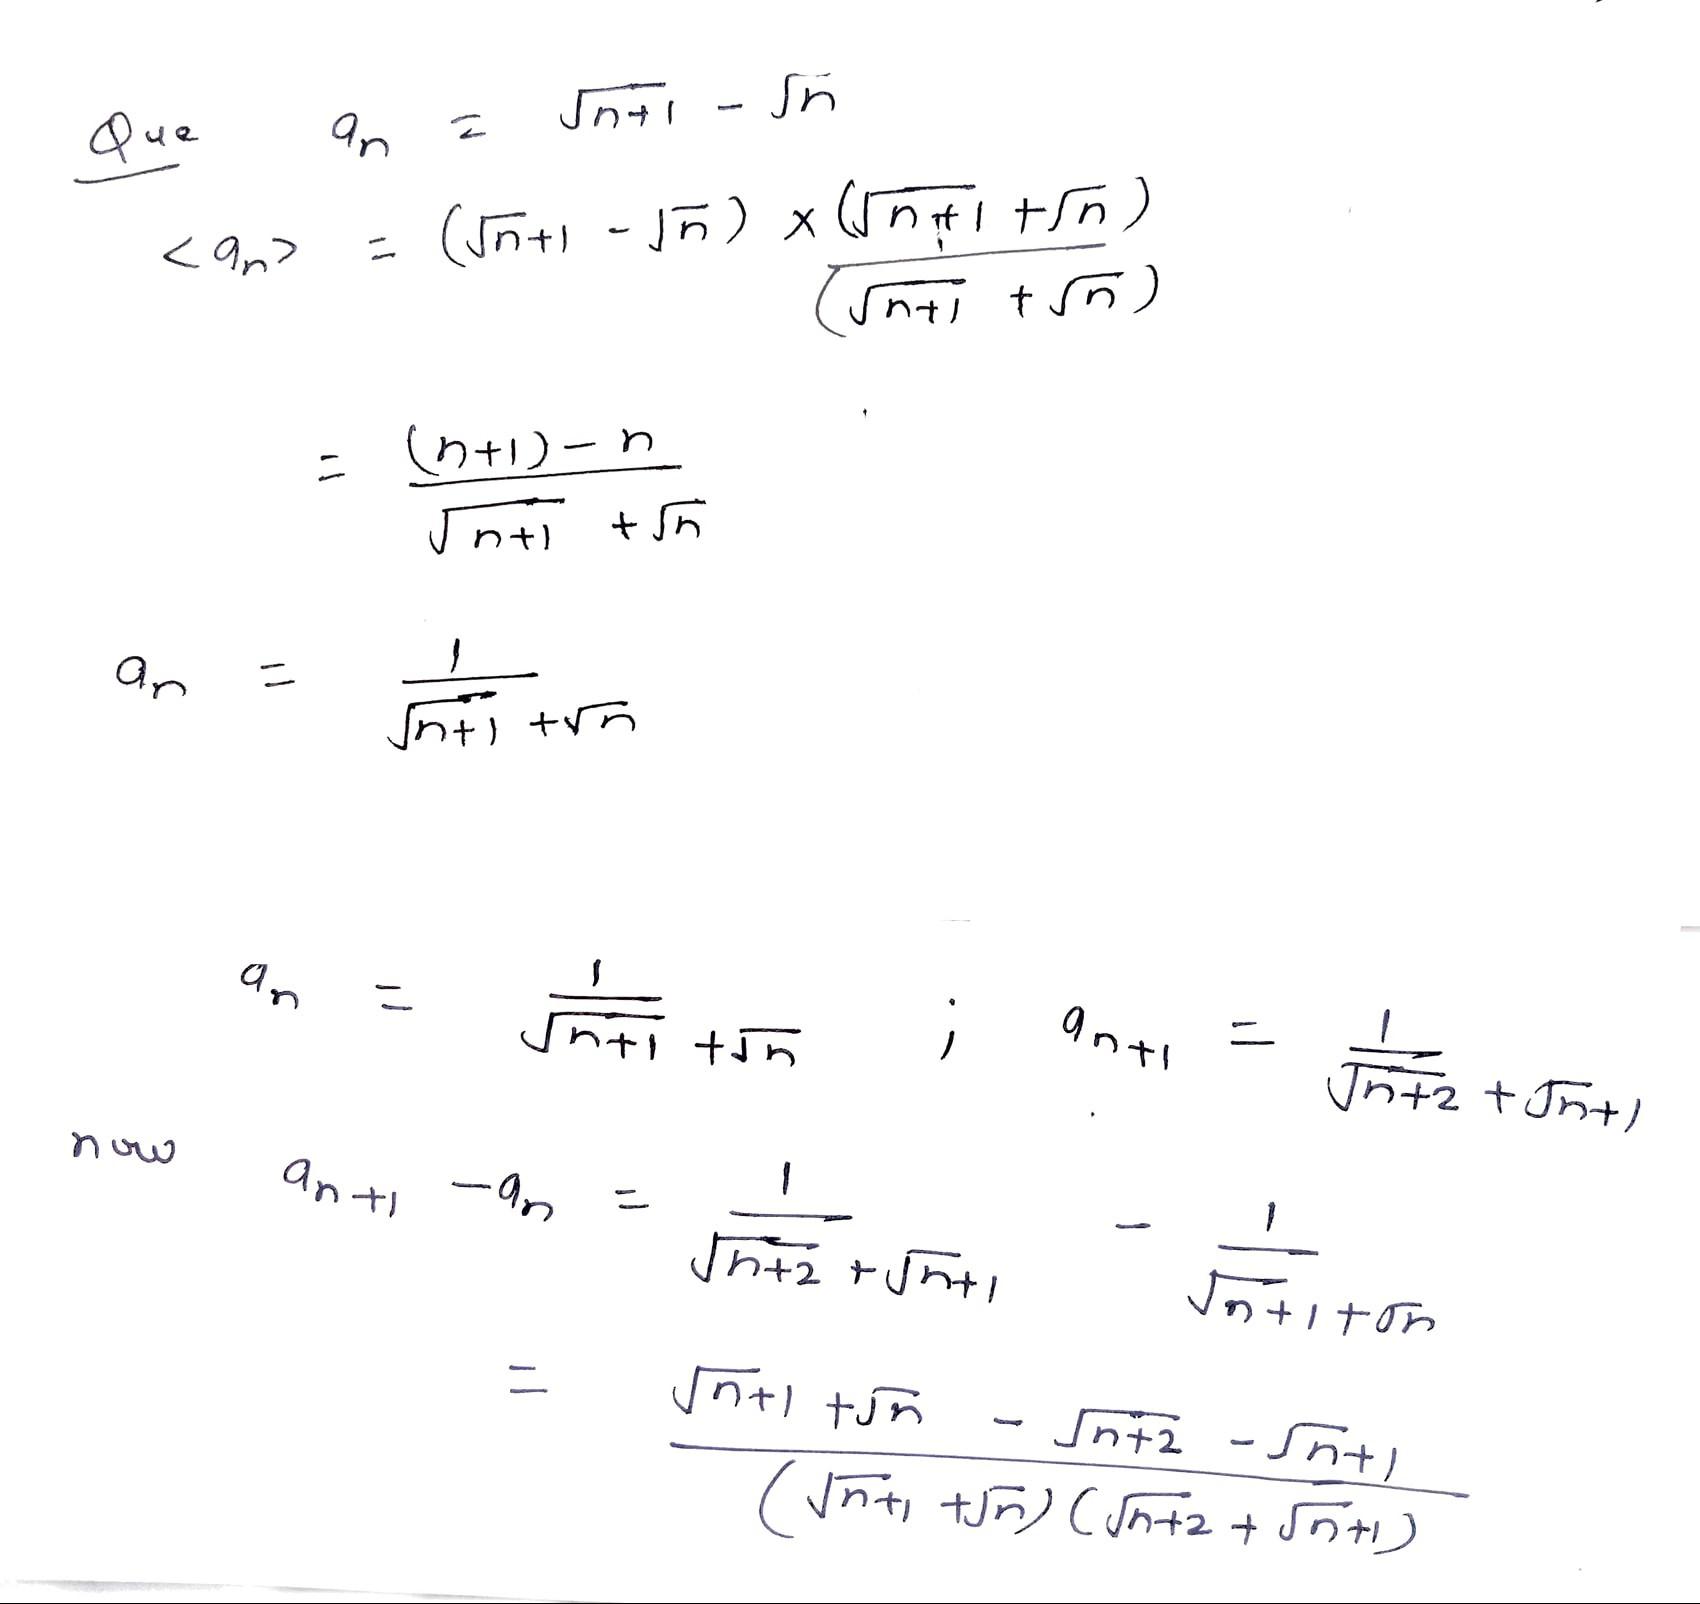 Que aₙ = √(n+1) - √n
<aₙ> = (√n+1 - √n) × (√(n+1) + √n) / (√(n+1) + √n)
= ((n+1) - n) / (√(n+1) + √n)
aₙ = 1 / (√(n+1) + √n)
aₙ = 1 / (√(n+1) + √n) ; aₙ₊₁ = 1 / (√(n+2) + √n+1)
now aₙ₊₁ - aₙ = 1 / (√(n+2) + √n+1) - 1 / (√n+1 + √n)
= (√n+1 + √n - √(n+2) - √n+1) / ((√n+1 + √n) (√(n+2) + √n+1))